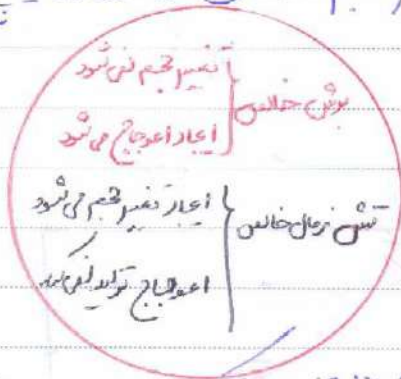 برش خالص { تغییر حجم نمی شود
ایجاد اعوجاج می شود
تنش نرمال خالص { ایجاد تغییر حجم می شود
اعوجاج تولید نمی کند